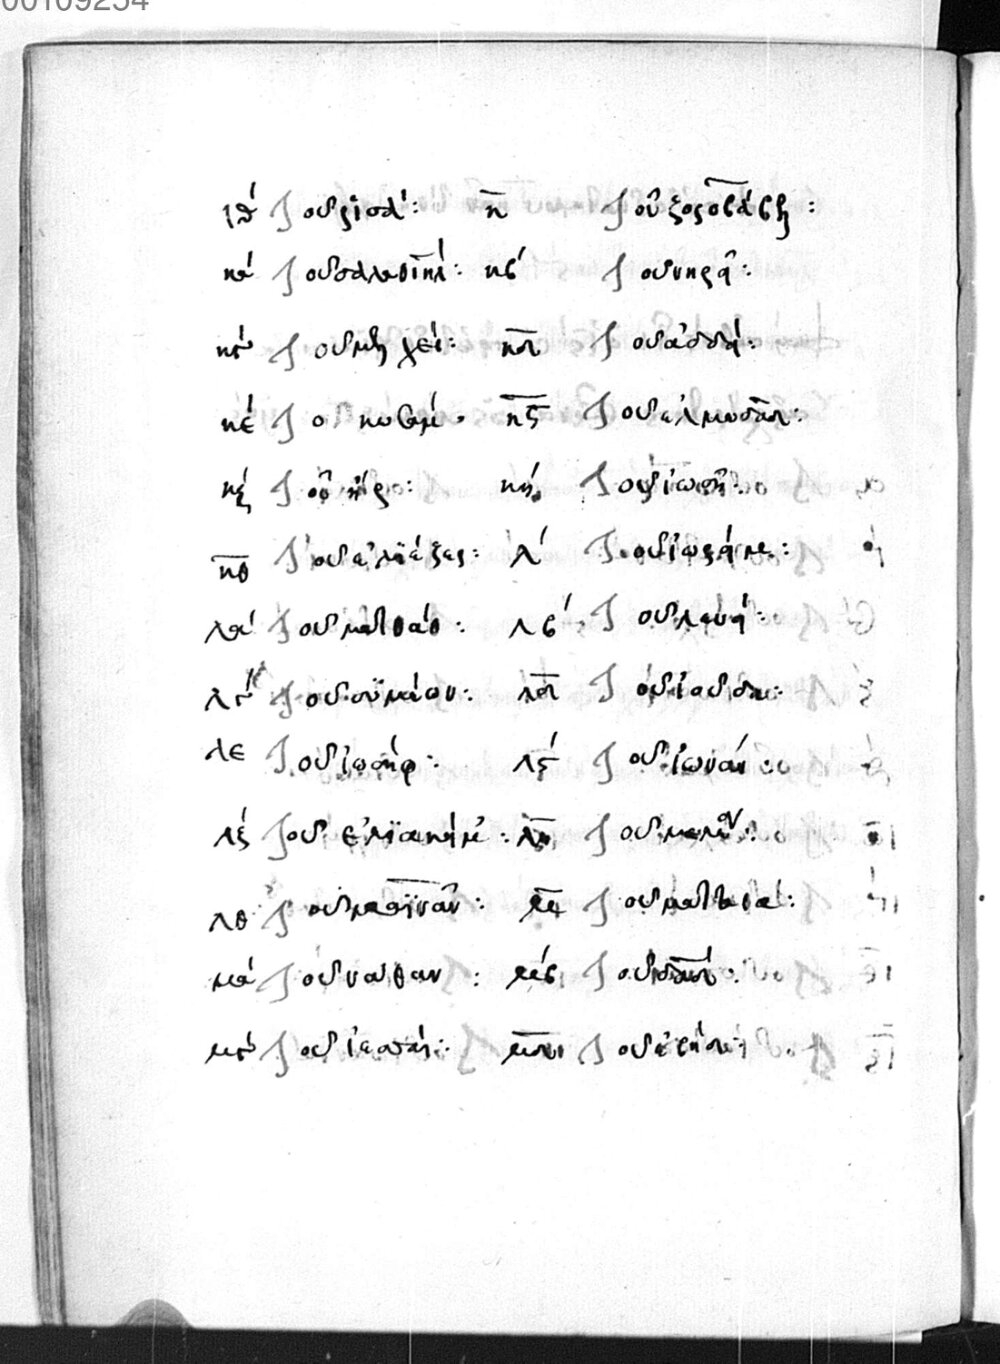 00109254
ιθ΄ τοῦ ρισά: κ̅ τοῦ ζοροβάβη:
κα΄ τοῦ σαλαθιήλ: κβ΄ τοῦ νηρί:
κγ΄ τοῦ μελχεί: κδ τοῦ ἀδδί:
κε΄ τοῦ κωσάμ: κς τοῦ ἐλμωδάμ:
κζ τοῦ ἤρ: κη΄ τοῦ ἰωσῆ:
κθ τοῦ ἐλιέζερ: λ΄ τοῦ ἰωράμ:
λα΄ τοῦ ματθάθ: λβ΄ τοῦ λευί:
λγ΄ τοῦ συμεών: λδ τοῦ ἰούδα:
λε τοῦ ἰωσήφ: λς τοῦ ἰωνάν:
λζ τοῦ ἐλιακήμ: λη τοῦ
λθ τοῦ μαϊνάν: μ τοῦ ματταθά:
μα΄ τοῦ ναθαν: μβ΄ τοῦ δαδ:
μγ τοῦ ἰεσσαί: μδ τοῦ